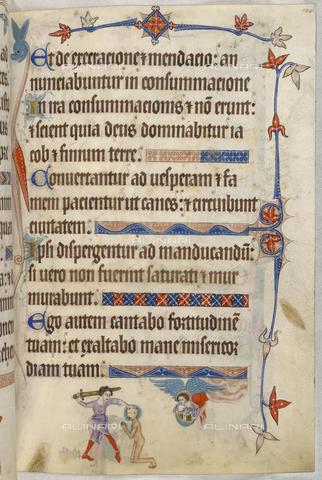 Et de execracione & mendacio: an
nunciabuntur in consummacione
In ira consummacionis & nõ erunt:
& scient quia deus dominabitur ia
cob & finium terre.
Conuertantur ad uesperam & fa
mem pacientur ut canes: & circuibunt
ciuitatem.
Ipsi dispergentur ad manducandũ:
si uero non fuerint saturati & mur
murabunt.
Ego autem cantabo fortitudinẽ
tuam: et exaltabo mane misericor
diam tuam.
ALINARI
ALINARI
ALINARI
ALINARI